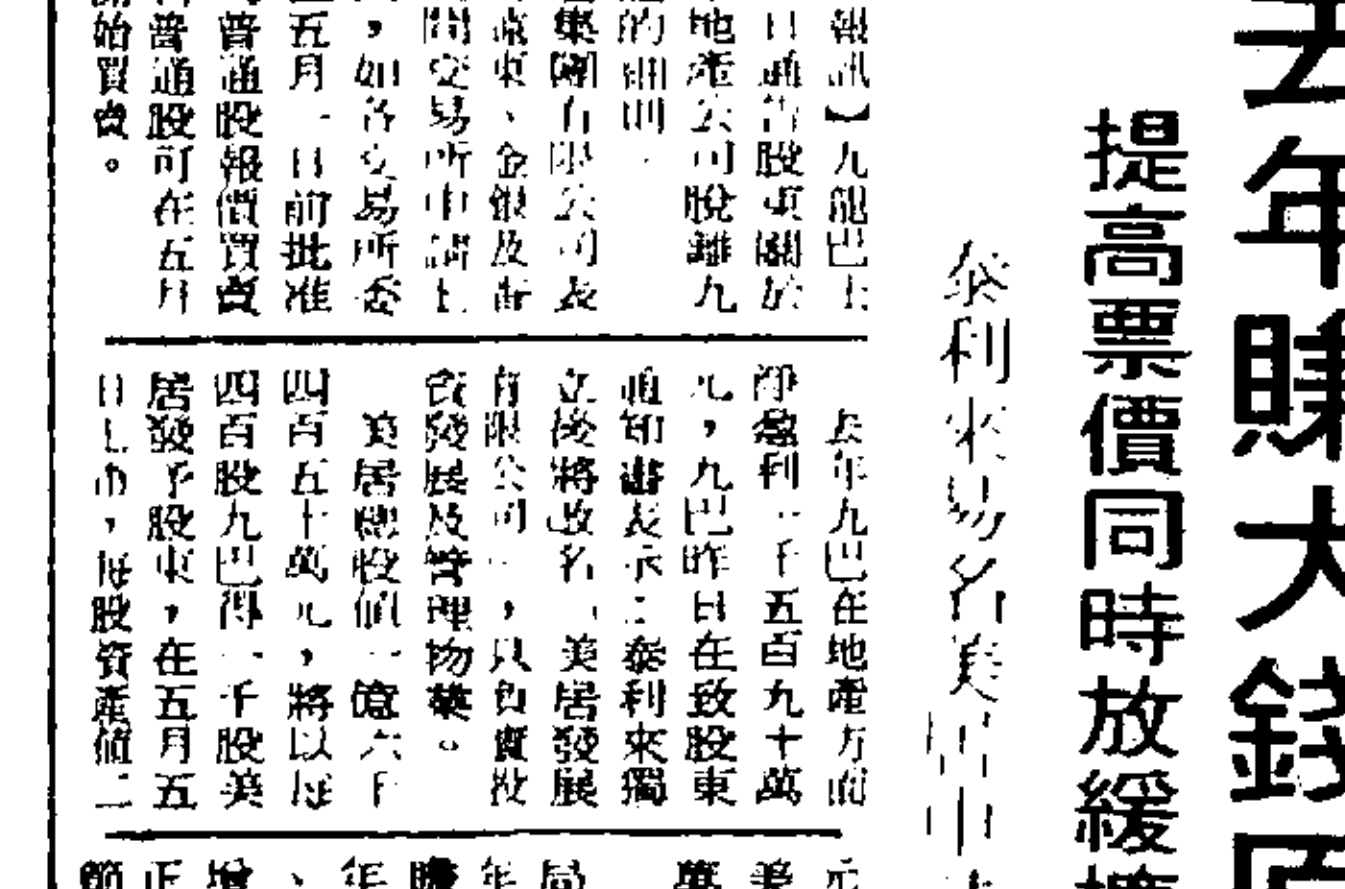 去年賺大錢
提高票價同時放緩
泰利來易名美居
報訊】九龍巴士
日通告股東關於
地產公司脫離九
的細則。
集團有限公司表
遠東、金銀及香
間交易所申請上
,如各交易所委
五月一日前批准
普通股報價買賣
普通股可在五月
開始買賣。
去年九巴在地產方面
淨盈利一千五百九十萬
元,九巴昨日在致股東
通知書表示:泰利來獨
立後將改名「美居發展
有限公司」,只負責投
資發展及管理物業。
美居總股值一億六千
四百五十萬元,將以每
四百股九巴得一千股美
居發予股東,在五月五
日上市,每股資產值二